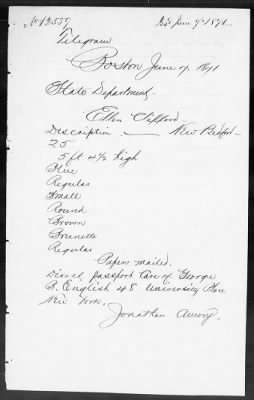 No 13559 Isd June 7th 1871
Telegram
Boston June 7. 1871
State Department
Ellen Clifford
Description — New Bedford
25
5 ft 4 1/2 high
Blue
Regular
Small
Round
Brown
Brunette
Regular
Papers mailed.
Direct passport Care of George
B. English 48 University Place
New York.
Jonathan Amory.